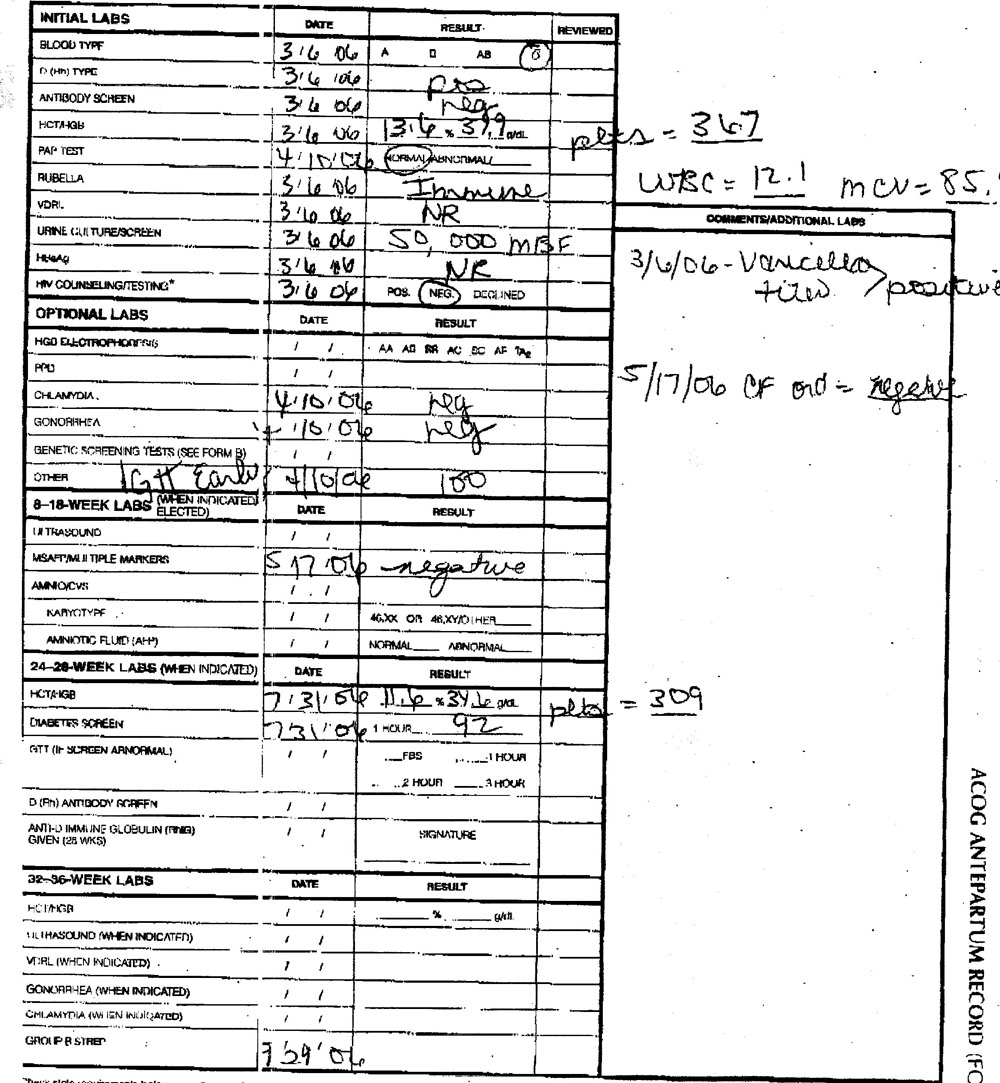 INITIAL LABS DATE RESULT REVIEWED
BLOOD TYPE 3/6/06 A B AB O
D (Rh) TYPE 3/6/06 pos
ANTIBODY SCREEN 3/6/06 neg
HCT/HGB 3/6/06 13.6 % 37.9 g/dL plts = 367
PAP TEST 4/10/06 NORMAL/ABNORMAL/
WBC = 12.1 MCV = 85.
RUBELLA 3/6/06 Immune
VDRL 3/6/06 NR
COMMENTS/ADDITIONAL LABS
URINE CULTURE/SCREEN 3/6/06 50,000 MBF
HBsAg 3/6/06 NR
3/6/06 - Varicella titer positive
HIV COUNSELING/TESTING* 3/6/06 POS. NEG. DECLINED
OPTIONAL LABS DATE RESULT
HGB ELECTROPHORESIS / / AA AS SS AC SC AF TA2
PPD / /
5/17/06 CF = negative
CHLAMYDIA 4/10/06 neg
GONORRHEA 4/10/06 neg
GENETIC SCREENING TESTS (SEE FORM B) / /
OTHER Early 4/10/06 100
8–18-WEEK LABS (WHEN INDICATED/ELECTED) DATE RESULT
ULTRASOUND / /
MSAFP/MULTIPLE MARKERS 5/17/06 negative
AMNIO/CVS / /
KARYOTYPE / / 46,XX OR 46,XY/OTHER
AMNIOTIC FLUID (AFP) / / NORMAL ABNORMAL
24–28-WEEK LABS (WHEN INDICATED) DATE RESULT
HCT/HGB 7/31/06 11.6 % 34.6 g/dL plts = 309
DIABETES SCREEN 7/31/06 1 HOUR 92
GTT (IF SCREEN ABNORMAL) / / FBS 1 HOUR
2 HOUR 3 HOUR
D (Rh) ANTIBODY SCREEN / /
ANTI-D IMMUNE GLOBULIN (RhIG)
GIVEN (28 WKS) / / SIGNATURE
32–36-WEEK LABS DATE RESULT
HCT/HGB / / % g/dL
ULTRASOUND (WHEN INDICATED) / /
VDRL (WHEN INDICATED) / /
GONORRHEA (WHEN INDICATED) / /
CHLAMYDIA (WHEN INDICATED) / /
GROUP B STREP 29/06
ACOG ANTEPARTUM RECORD (FO